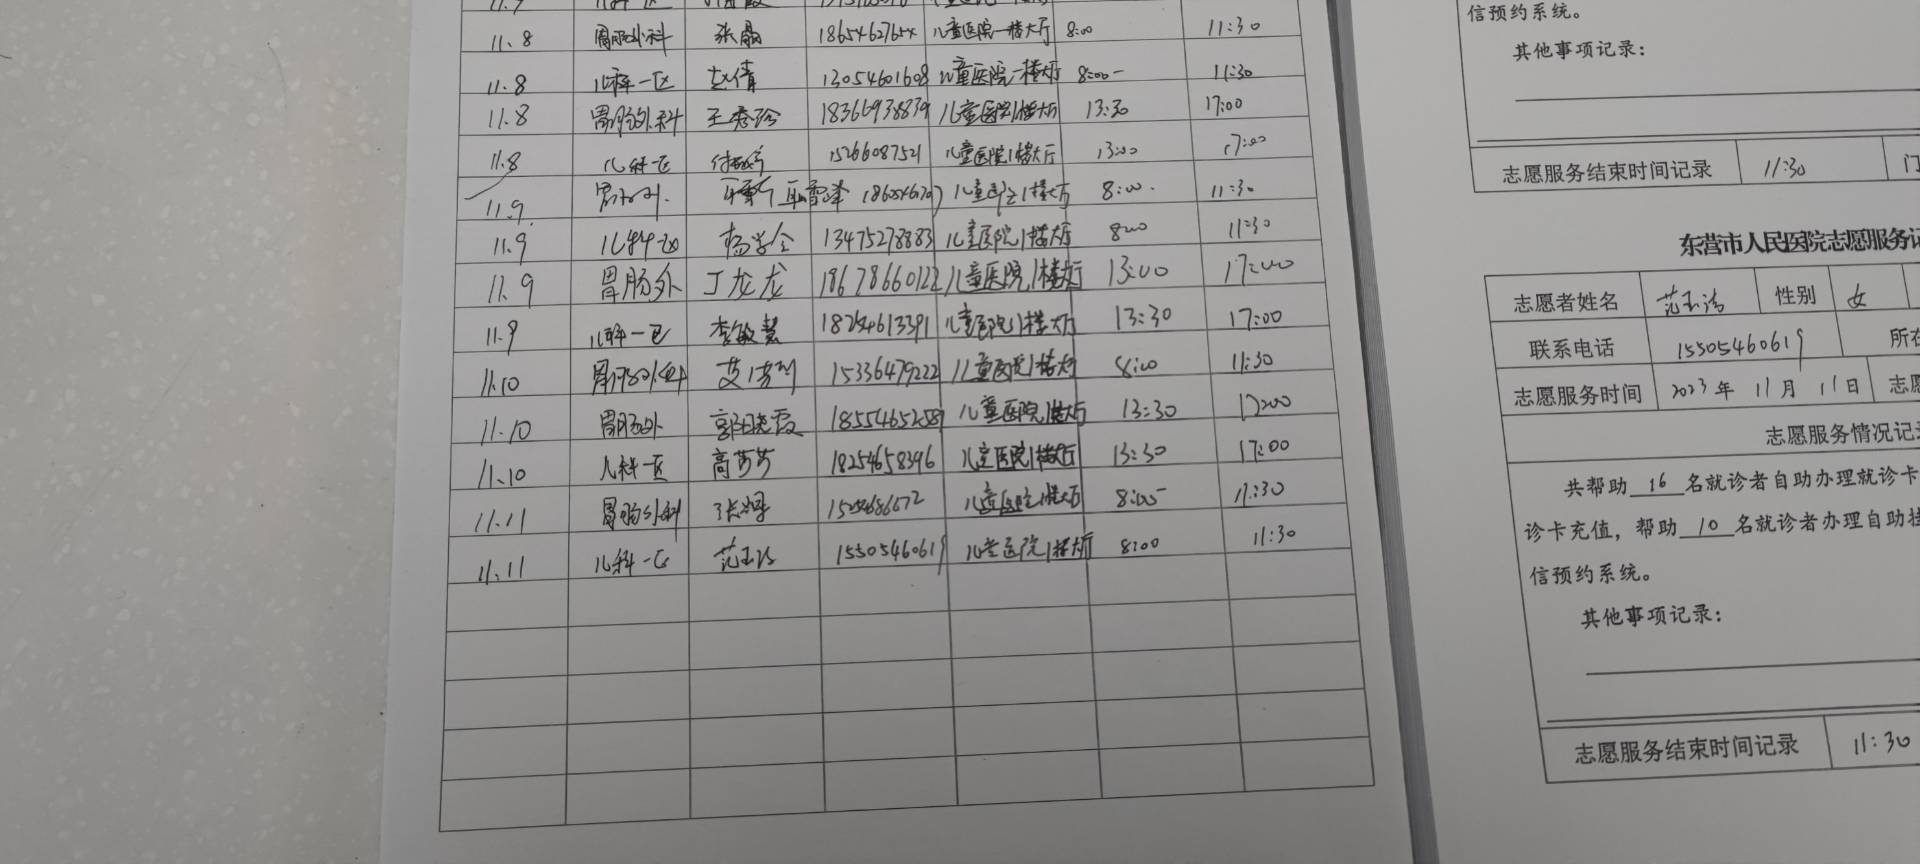 11.8 胃肠外科 张晶 儿童医院一楼大厅 8:00 11:30
11.8 儿科一区 赵倩 13054601608 儿童医院一楼大厅 8:00- 11:30
11.8 胃肠外科 王秀玲 18366938839 儿童医院1楼大厅 13:30 17:00
11.8 儿科一区 15266087521 儿童医院1楼大厅 13:00 17:00
11.9 胃肠外 儿童医院1楼大厅 8:00. 11:30
11.9 儿科一区 杨学全 13475278883 儿童医院1楼大厅 8:00 11:30
11.9 胃肠外 丁龙龙 18678660122 儿童医院1楼大厅 13:00 17:00
11.9 儿科一区 李敏慧 18254613391 儿童医院1楼大厅 13:30 17:00
11.10 胃肠外科 15336479222 儿童医院1楼大厅 8:00 11:30
11.10 胃肠外 郭晓霞 18554652589 儿童医院1楼大厅 13:30 17:00
11.10 儿科一区 高芳芳 18254658396 儿童医院1楼大厅 13:30 17:00
11.11 胃肠外科 儿童医院1楼大厅 8:00 11:30
11.11 儿科一区 范玉洁 15505460619 儿童医院1楼大厅 8:00 11:30
信预约系统。
其他事项记录:
志愿服务结束时间记录 11:30 门
东营市人民医院志愿服务记
志愿者姓名 范玉洁 性别 女
联系电话 15505460619 所在
志愿服务时间 2023年11月11日 志愿
志愿服务情况记录
共帮助 16 名就诊者自助办理就诊卡
诊卡充值，帮助 10 名就诊者办理自助挂
信预约系统。
其他事项记录:
志愿服务结束时间记录 11:30